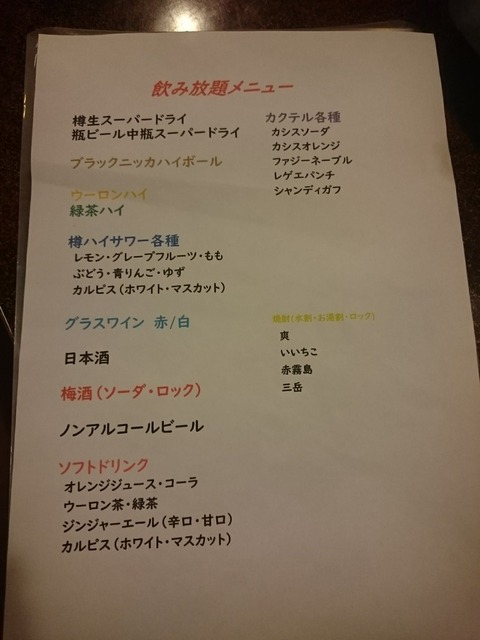 飲み放題メニュー
樽生スーパードライ
瓶ビール中瓶スーパードライ
ブラックニッカハイボール
ウーロンハイ
緑茶ハイ
樽ハイサワー各種
レモン・グレープフルーツ・もも
ぶどう・青りんご・ゆず
カルピス(ホワイト・マスカット)
グラスワイン 赤/白
日本酒
梅酒(ソーダ・ロック)
ノンアルコールビール
ソフトドリンク
オレンジジュース・コーラ
ウーロン茶・緑茶
ジンジャーエール(辛口・甘口)
カルピス(ホワイト・マスカット)
カクテル各種
カシスソーダ
カシスオレンジ
ファジーネーブル
レゲエパンチ
シャンディガフ
焼酎(水割・お湯割・ロック)
爽
いいちこ
赤霧島
三岳